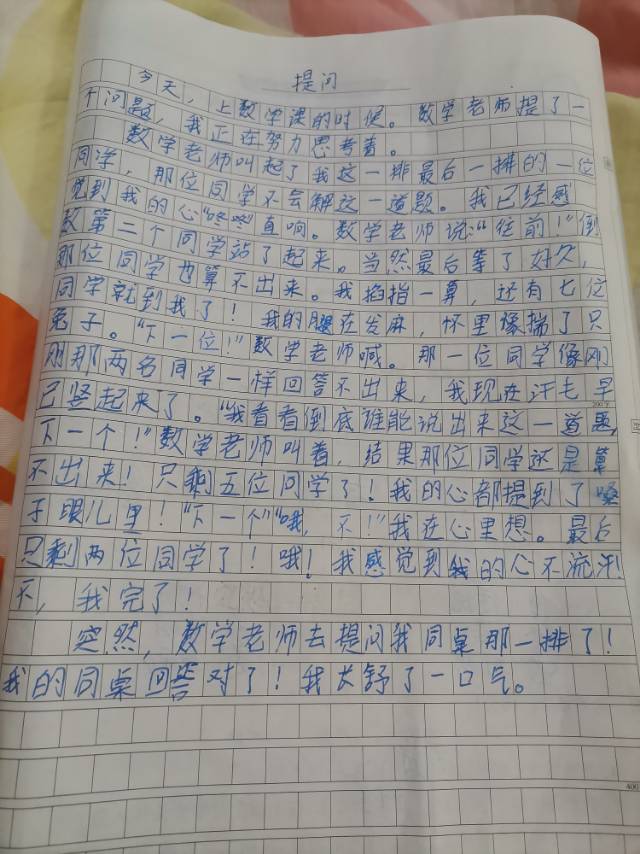 提问
今天，上数学课的时候。数学老师提了一
个问题，我正在努力思考着。
数学老师叫起了我这一排最后一排的一位
同学，那位同学不会解这一道题。我已经感
觉到我的心“咚咚”直响。数学老师说：“往前！”倒
数第二个同学站了起来。当然最后等了好久，
那位同学也算不出来。我掐指一算，还有七位
同学就到我了！我的腿在发麻，怀里像揣了只
兔子。“下一位！”数学老师喊。那一位同学像刚
刚那两名同学一样回答不出来，我现在汗毛早
已竖起来了。“我看看倒底谁能说出来这一道题，
下一个！”数学老师叫着，结果那位同学还是算
不出来！只剩五位同学了！我的心都提到了嗓
子眼儿里！“下一个”“哦，不！”我在心里想。最后
只剩两位同学了！哦！我感觉到我的心不流汗！
不，我完了！
突然，数学老师去提问我同桌那一排了！
我的同桌回答对了！我大舒了一口气。
400